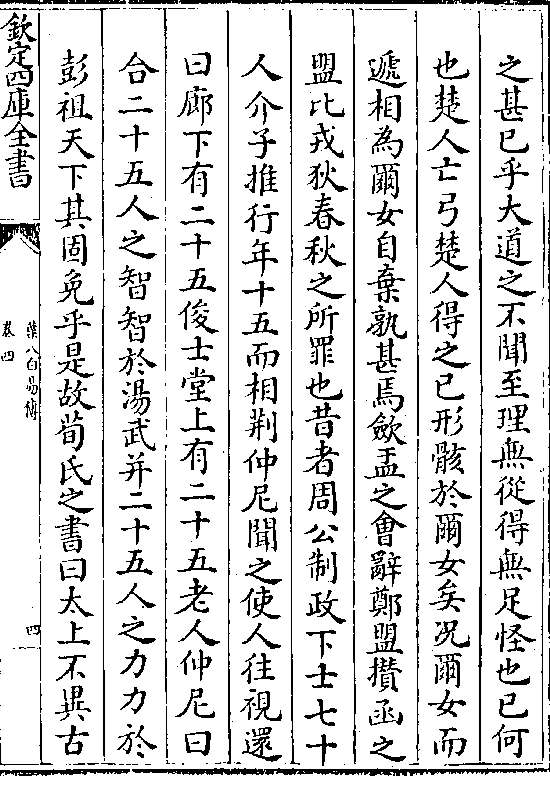 之甚已乎大道之不聞至理無從得無足怪也已何
也楚人亡弓楚人得之已形骸於爾女矣况爾女而
遞相為爾女自棄孰甚焉歛盂之會辭鄭盟攅函之
盟比戎狄春秋之所罪也昔者周公制政下士七十
人介子推行年十五而相荆仲尼聞之使人往視還
曰廊下有二十五俊士堂上有二十五老人仲尼曰
合二十五人之智智於湯武并二十五人之力力於
彭祖天下其固免乎是故荀氏之書曰太上不異古
欽定四庫全書
葉八白易傳
卷四
四